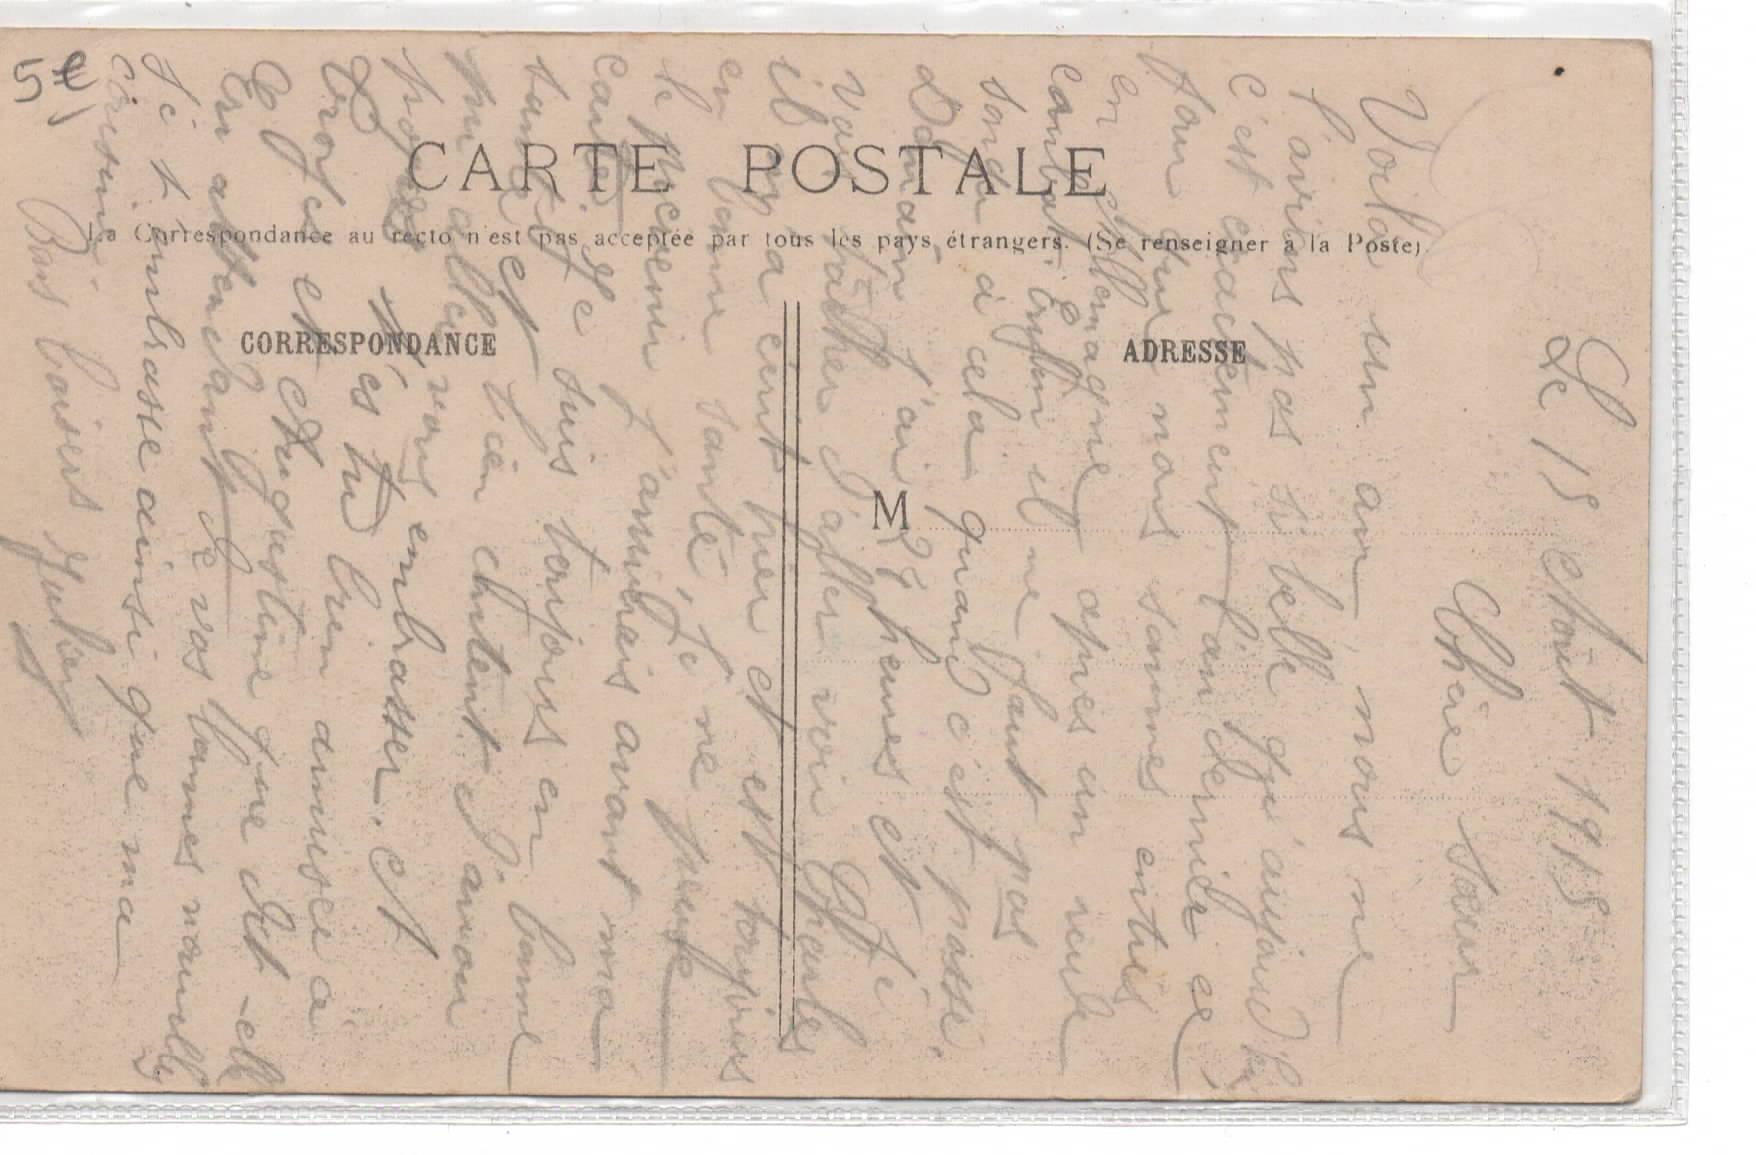 CARTE POSTALE
La Correspondance au recto n'est pas acceptée par tous les pays étrangers. (Se renseigner à la Poste).
CORRESPONDANCE
ADRESSE
M
5€
Le 15 Août 1915
Chère Soeur
Voila un an nous ne
l'avions pas si belle qu'aujourd'hui
c'est exactement l'an dernier ce
jour que nous sommes entrés
en Allemagne apres un rude
combat. Enfin il ne faut pas
songer à cela quand c'est passé.
Demain j'ai 24 heures et je
vais tacher d'aller voir Charles
il m'a écrit hier et est toujours
en bonne santé, je ne peut
te prevenir j'arriverais avant ma
carte, je suis toujours en bonne
santé et
bien content d'avoir
vous embrasser. et
t'es tu bien amusée à
et Augustine que dit-elle
En attendant de vos bonnes nouvelles
Je t'embrasse ainsi que ma
cousine.
Bons baisers